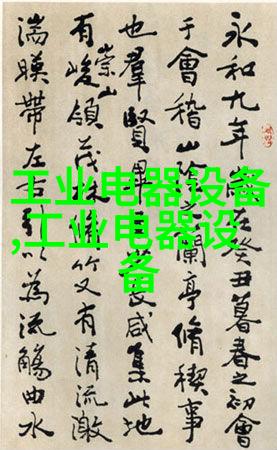 永和九年在癸丑暮春之初會
于會稽山陰蘭亭脩稧事
也羣賢畢長咸集此地
有崇山峻領茂林竹又有清流激
湍暎帶左右引以為流觴曲水
工业电器设备
,工业电器设
备